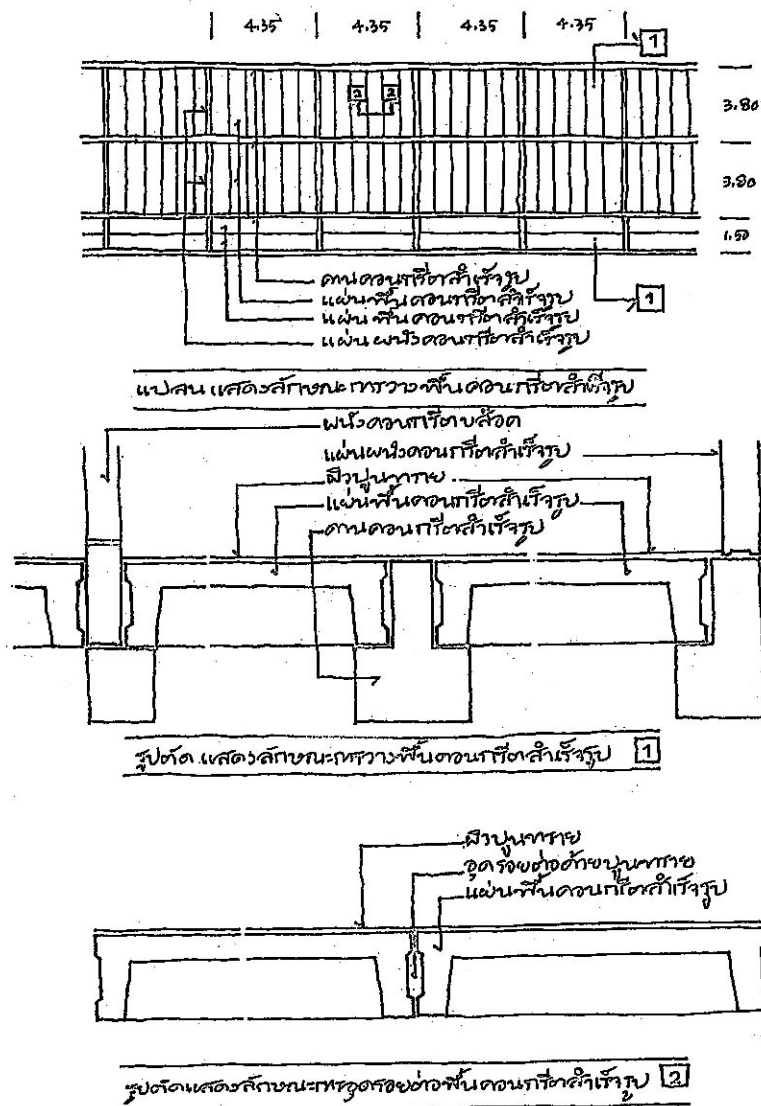 4.35 4.35 4.35 4.35
1
2 2
3.80
3.80
1.50
คานคอนกรีตสำเร็จรูป
แผ่นพื้นคอนกรีตสำเร็จรูป
แผ่นพื้นคอนกรีตสำเร็จรูป
1
แผ่นผนังคอนกรีตสำเร็จรูป
แปลนแสดงลักษณะการวางพื้นคอนกรีตสำเร็จรูป
ผนังคอนกรีตบล๊อค
แผ่นผนังคอนกรีตสำเร็จรูป
ผิวปูนทราย
แผ่นพื้นคอนกรีตสำเร็จรูป
คานคอนกรีตสำเร็จรูป
รูปตัดแสดงลักษณะการวางพื้นคอนกรีตสำเร็จรูป 1
ผิวปูนทราย
อุดรอยต่อด้วยปูนทราย
แผ่นพื้นคอนกรีตสำเร็จรูป
รูปตัดแสดงลักษณะการอุดรอยต่อพื้นคอนกรีตสำเร็จรูป 2